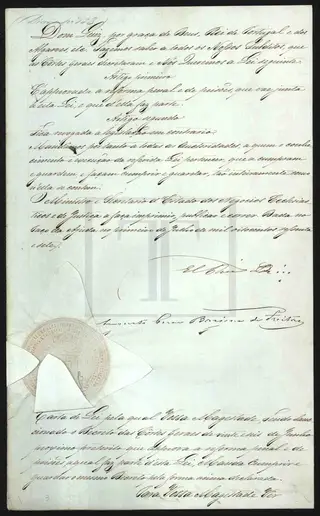 Dom Luiz, por graça de Deus, Rei de Portugal e dos
Algarves etc. Fazemos saber a todos os Nossos Subditos, que
as Côrtes Geraes decretaram e Nós Queremos a Lei seguinte.
Artigo primeiro
É approvada a reforma penal e de prisões, que vai junta
a esta Lei, e que d'ella faz parte.
Artigo segundo
Fica revogada a legislação em contrario.
Mandâmos por tanto a todas as Authoridades, a quem o conhe-
cimento e execução da referida Lei pertencer, que a cumpram
e guardem e façam cumprir e guardar, tão inteiramente como
n'ella se contém.
O Ministro e Secretario d'Estado dos Negocios Ecclesias-
ticos e de Justiça a faça imprimir, publicar e correr. Dada no
Paço da Ajuda no primeiro de Julho de mil oitocentos sessenta
e sete.
El Rei
Augusto Cesar Barjona de Freitas
Carta de Lei pela qual Vossa Magestade, Tendo Sanc-
cionado o Decreto das Côrtes Geraes de vinte e seis de Junho
proximo preterito que approva a reforma penal e de
prisões a qual faz parte d'esta Lei, Manda cumprir e
guardar o mesmo Decreto pela forma acima declarada.
Para Vossa Magestade Ver